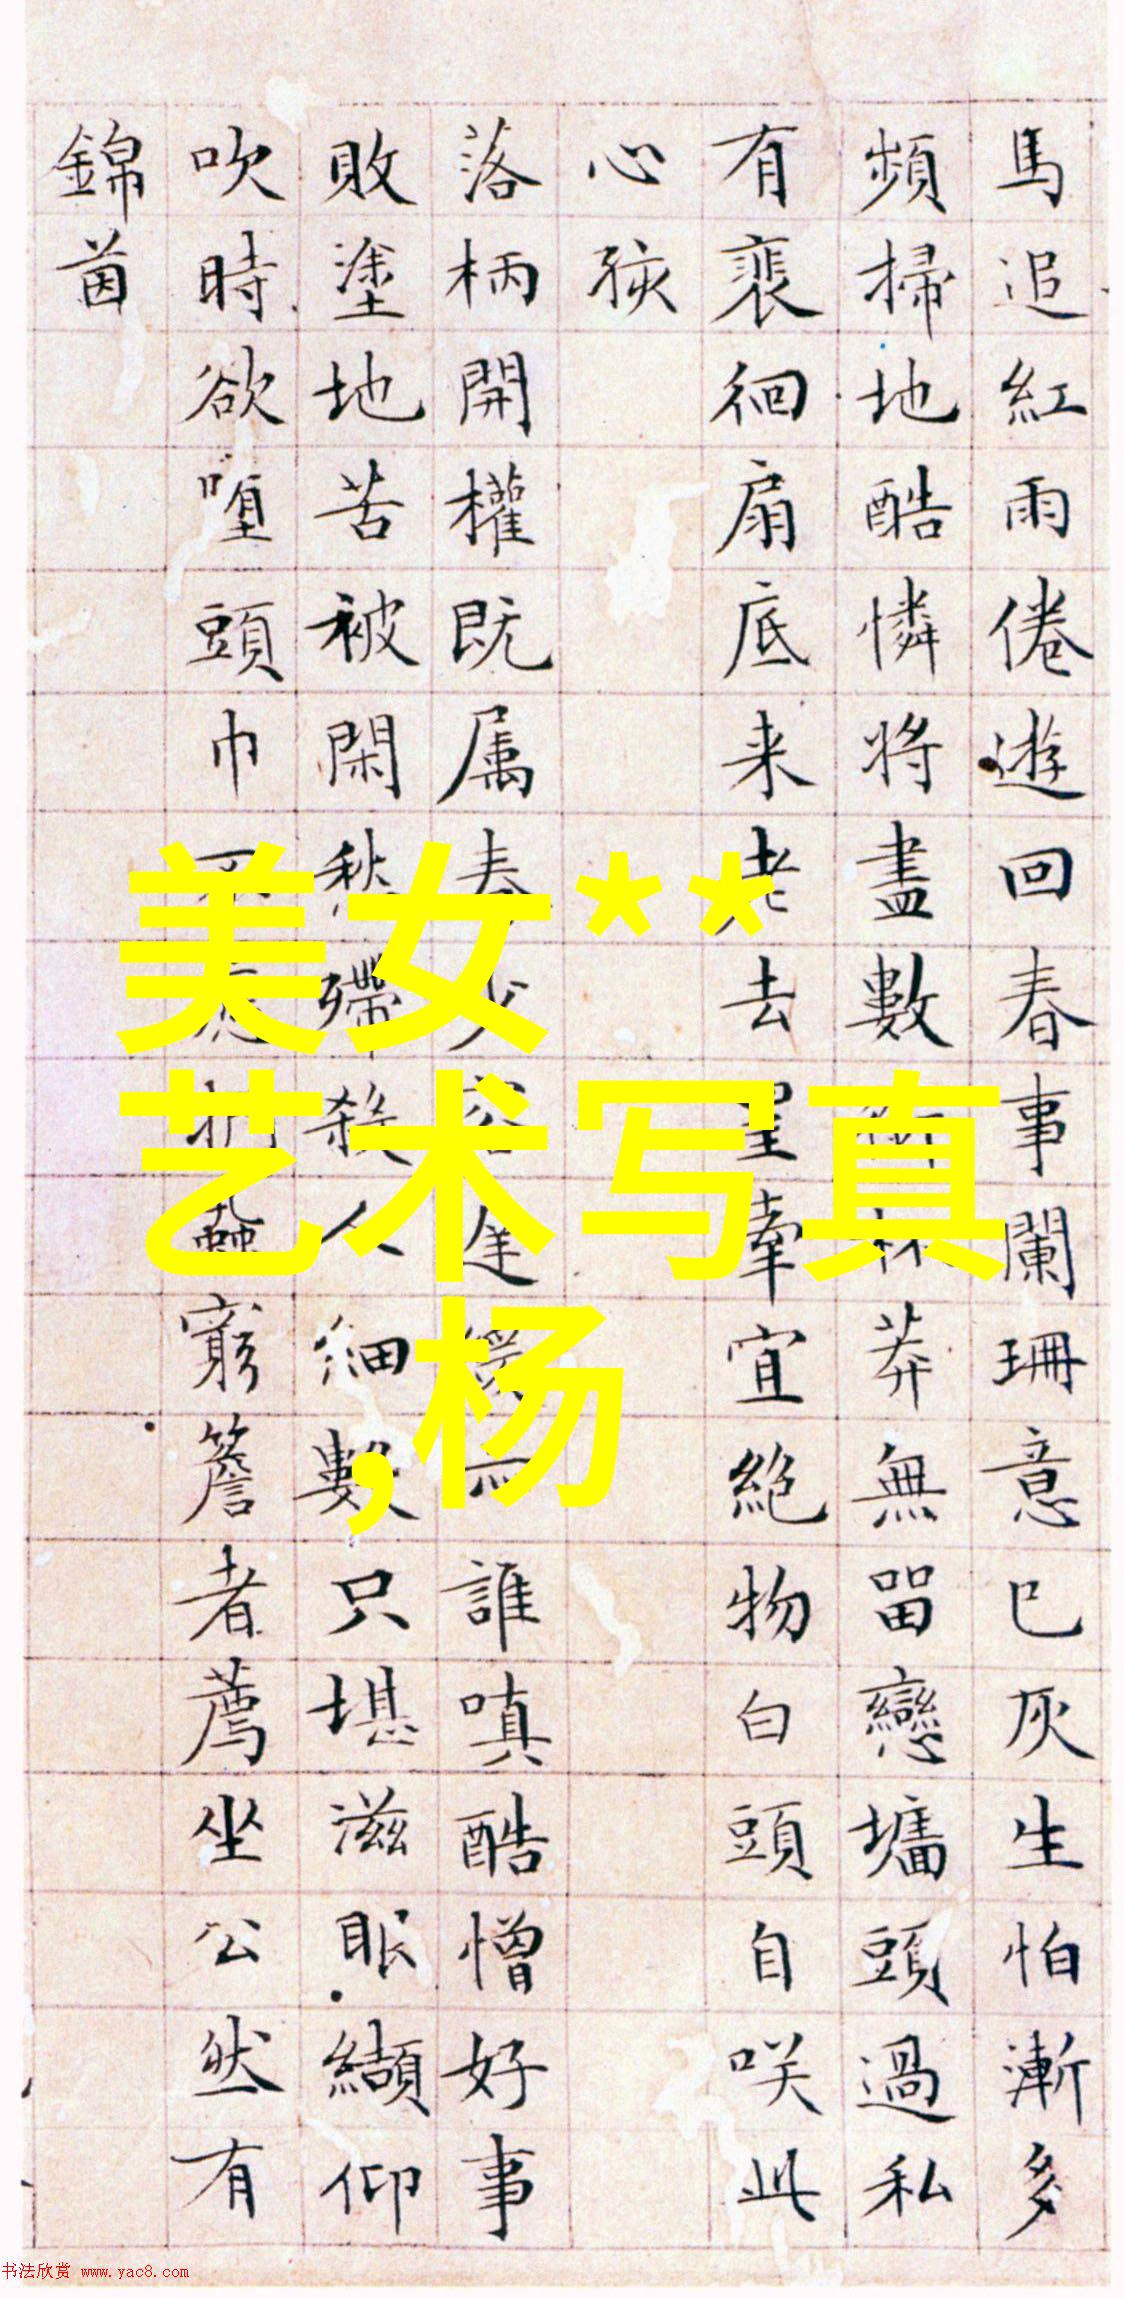 馬追紅雨倦遊回春事闌珊意已灰生怕漸多
頻掃地酷憐將盡數林莽無畱戀墉頭過私
有裴徊扇底来老去罣牽宜絶物白頭自咲此
心孩
落柄開權既属春少誰嗔酷憎好事
敗塗地苦被閑愁殢殺人細數只堪滋眼纈仰
吹時欲頭巾窮簷者薦坐公然有
錦茵
美女**
艺术写真
,杨
书法欣赏 www.yac8.com